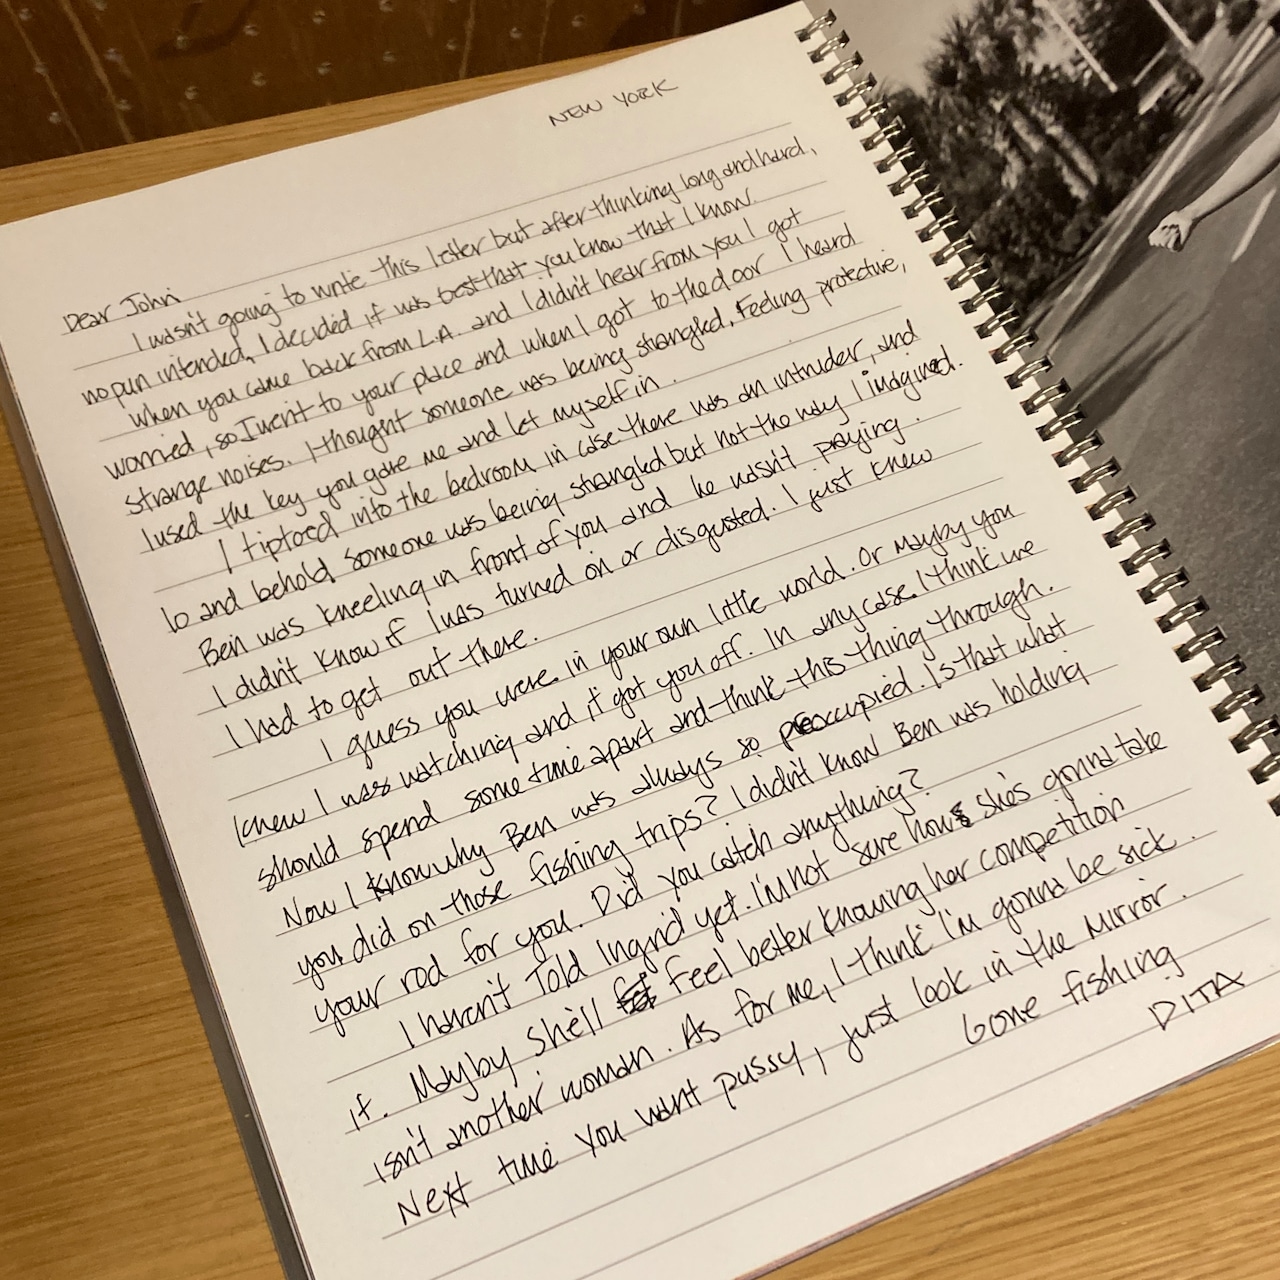 NEW YORK
Dear John
I wasn't going to write this letter but after thinking long and hard,
no pun intended, I decided it was best that you know that I know.
When you came back from L.A. and I didn't hear from you I got
worried, so I went to your place and when I got to the door I heard
strange noises. I thought someone was being strangled. Feeling protective,
I used the key you gave me and let myself in.
I tiptoed into the bedroom in case there was an intruder, and
lo and behold someone was being strangled but not the way I imagined.
Ben was kneeling in front of you and he wasn't praying.
I didn't know if I was turned on or disgusted. I just knew
I had to get out there.
I guess you were in your own little world. Or mayby you
knew I was watching and it got you off. In any case I think we
should spend some time apart and think this thing through.
Now I know why Ben was always so preoccupied. Is that what
you did on those fishing trips? I didn't know Ben was holding
your rod for you. Did you catch anything?
I haven't told Ingrid yet. I'm not sure how she's gonna take
it. Mayby she'll feel better knowing her competition
isn't another woman. As for me, I think I'm gonna be sick.
Next time you want pussy, just look in the mirror.
Gone fishing
DITA